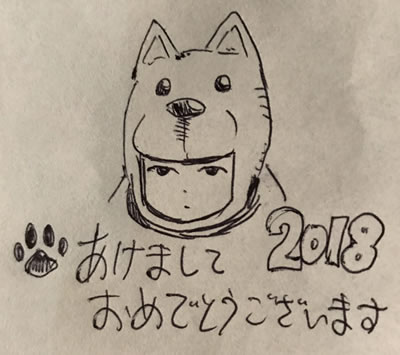 2018
あけまして
おめでとうございます